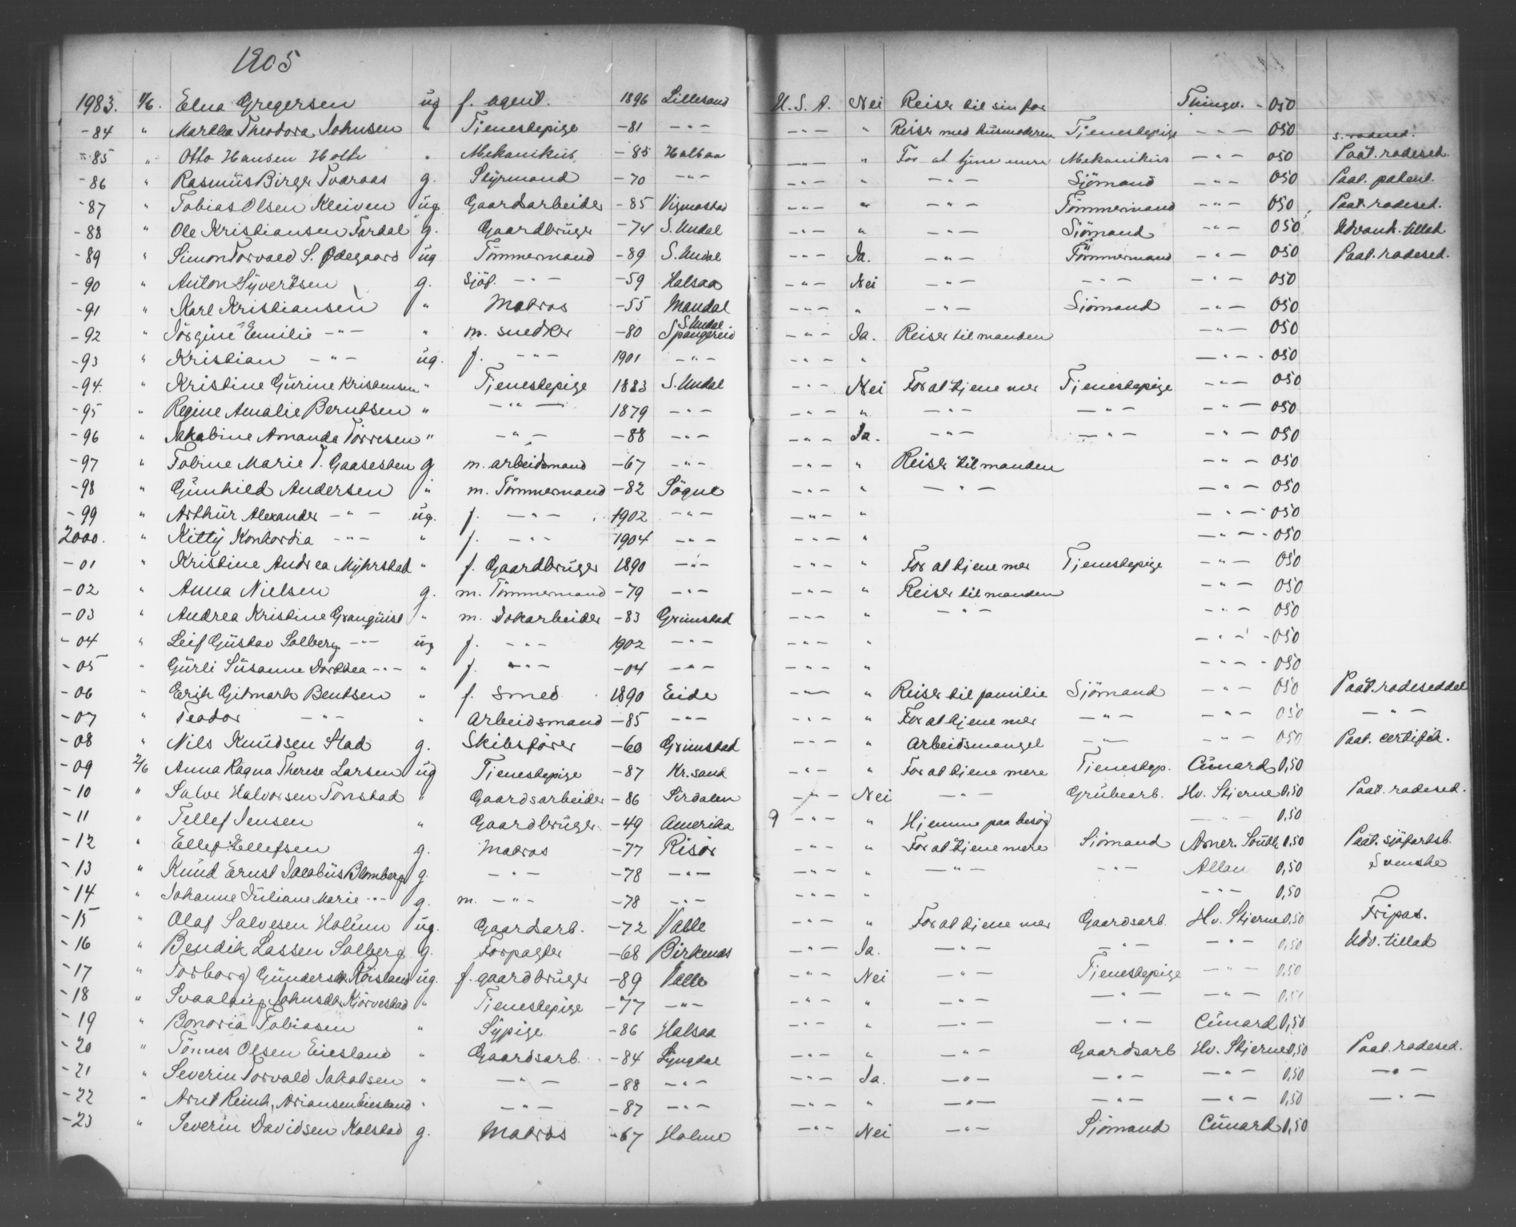 1905
1983. 1/6. Elna Gregersen ug f. agent. 1896 Lillesand U.S.A. Nei Reiser til sin far Thingv. - 050
-84 " Martha Theodora Johnsen " Tjenestepige -81 -"- -"- " Reiser med husmoderen Tjenestepige -"- 050 s. rodesed.
-85 " Otto Hansen Holte " Mekanikus -85 Halsaa -"- " For at tjene mere Mekanikus -"- 050 Paat. rodesed.
-86 " Rasmus Birger Tvaraas g. Styrmand -70 -"- -"- " -"- Sjömand -"- 050 Paat. patent.
-87 " Tobias Olsen Kleiven ug. Gaardsarbeider -85 Vigmostad -"- " -"- Tömmermand -"- 050 Paat. rodesed.
-88 " Ole Kristiansen Fardal g. Gaardbruger -74 S. Undal -"- " -"- Sjömand -"- 050 Udvand. tillad
-89 " Simon Torvald S. Ødegaard ug Tömmermand -89 S. Undal -"- Ja. -"- Tömmermand -"- 050 Paat. rodesed.
-90 " Anton Syvertsen g. Sjöf. -"- -59 Halsaa -"- Nei -"- -"- -"- 050
-91 " Karl Kristiansen " Matros -55 Mandal -"- " -"- Sjömand -"- 050
-92 " Jörgine Emilie -"- " m. snedker -80 S. Undal Spangereid -"- Ja. Reiser til manden -"- 050
-93 " Kristian -"- ug. f. -"- 1901 -"- -"- " -"- 050
-94 " Kristine Gurine Kristensen " Tjenestepige 1883 S. Undal -"- Nei For at tjene mer Tjenestepige -"- 050
-95 " Regine Amalie Berntsen " -"- 1879 -"- -"- " -"- -"- -"- 050
-96 " Jakobine Amanda Törresen " -"- -88 -"- -"- Ja. -"- -"- -"- 050
-97 " Tobine Marie T. Gaasesten g m. arbeidsmand -67 -"- -"- " Reiser til manden -"- 050
-98 " Gunhild Andersen " m. Tömmermand -82 Sögne -"- " -"- -"- 050
-99 " Arthur Alexander -"- ug. f. -"- 1902 -"- -"- " -"- 050
2000. " Kitty Konkordia -"- " f. -"- 1904 -"- -"- " -"- 050
-01 " Kristine Andrea Myhrstad " f. Gaardbruger 1890 -"- -"- " For at tjene mer Tjenestepige -"- 050
-02 " Anna Nielsen g. m. Tömmermand -79 -"- -"- " Reiser til manden -"- 050
-03 " Andrea Kristine Granquist " m. Dokarbeider -83 Grimstad -"- " -"- -"- 050
-04 " Leif Gustav Solberg -"- ug f. -"- 1902 -"- -"- " -"- 050
-05 " Gurli Susanne Dorthea -"- " f. -"- -04 -"- -"- " -"- 050
-06 " Erik Gitmark Bentsen " f. Smed 1890 Eide -"- " Reiser til familie Sjömand -"- 050 Paat. rodeseddel
-07 " Teodor -"- " Arbeidsmand -85 -"- -"- " For at tjene mer -"- -"- 050 -"-
-08 " Nils Knudsen Stad g. Skibsfører -60 Grimstad -"- " Arbeidsmangel -"- -"- 050 Paat. certifik.
-09 2/6 Anna Ragna Therese Larsen ug Tjenestepige -87 Kr.sand -"- " For at tjene mere Tjenestep. Cunard 0,50
-10 " Salve Halvorsen Tonstad " Gaardsarbeider -86 Sirdalen -"- Nei -"- Grubearb. Hv. Stjerne 0,50 Paat. rodesed.
-11 " Tellef Jensen " Gaardbruger -49 Amerika 9 -"- " Hjemme paa besög -"- 0,50
-12 " Ellef Ellefsen g. Matros -77 Risör -"- " For at tjene mere Sjömand 0,50 Paat. sjöfartsb.
-13 " Knud Ernst Jacobus Blomberg g -"- -78 -"- -"- " -"- -"- Allan 0,50 Svenske
-14 " Johanne Juliane Marie -"- g. m. -"- -78 -"- -"- " -"- 0,50
-15 " Olaf Salvesen Holum ug. Gaardsarb. -72 Valle " For at tjene mer Gaardsarb. Hv. Stjerne 0,50 Fripas.
-16 " Bendik Lassen Solberg g. Forpagter -68 Birkenes -"- Ja. -"- -"- -"- 0,50 Udv. tillad
-17 " Torborg Gundersd. ug. f. gaardbruger -89 Valle -"- Nei -"- Tjenestepige -"- 0,50
-18 " Johnsd. " Tjenestepige -77 -"- -"- " -"- -"- -"- 0,50
-19 " Bonoria Tobiasen " Sypige -86 Halsaa -"- " -"- -"- Cunard 0,50
-20 " Tönnes Olsen Eiesland " Gaardsarb. -84 Lyngdal -"- " -"- Gaardsarb Hv. Stjerne 0,50 Paat. rodesed.
-21 " Severin Torvald Jakobsen " -"- -88 -"- -"- Ja. -"- -"- -"- 0,50 -"-
-22 " Arnt Reinh. Ariansen Eiesland " -"- -87 -"- -"- " -"- -"- -"- 0,50 -"-
-23 " Severin Davidsen Kalstad g. Matros -67 Holme -"- Nei -"- Sjömand Cunard 0,50